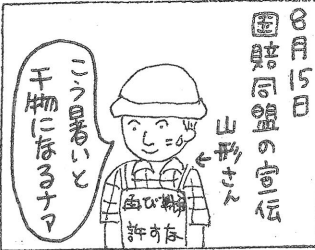 8月15日
国賠同盟の宣伝
山形さん
こう暑いと
干物になるナァ
再び戦争
許すな